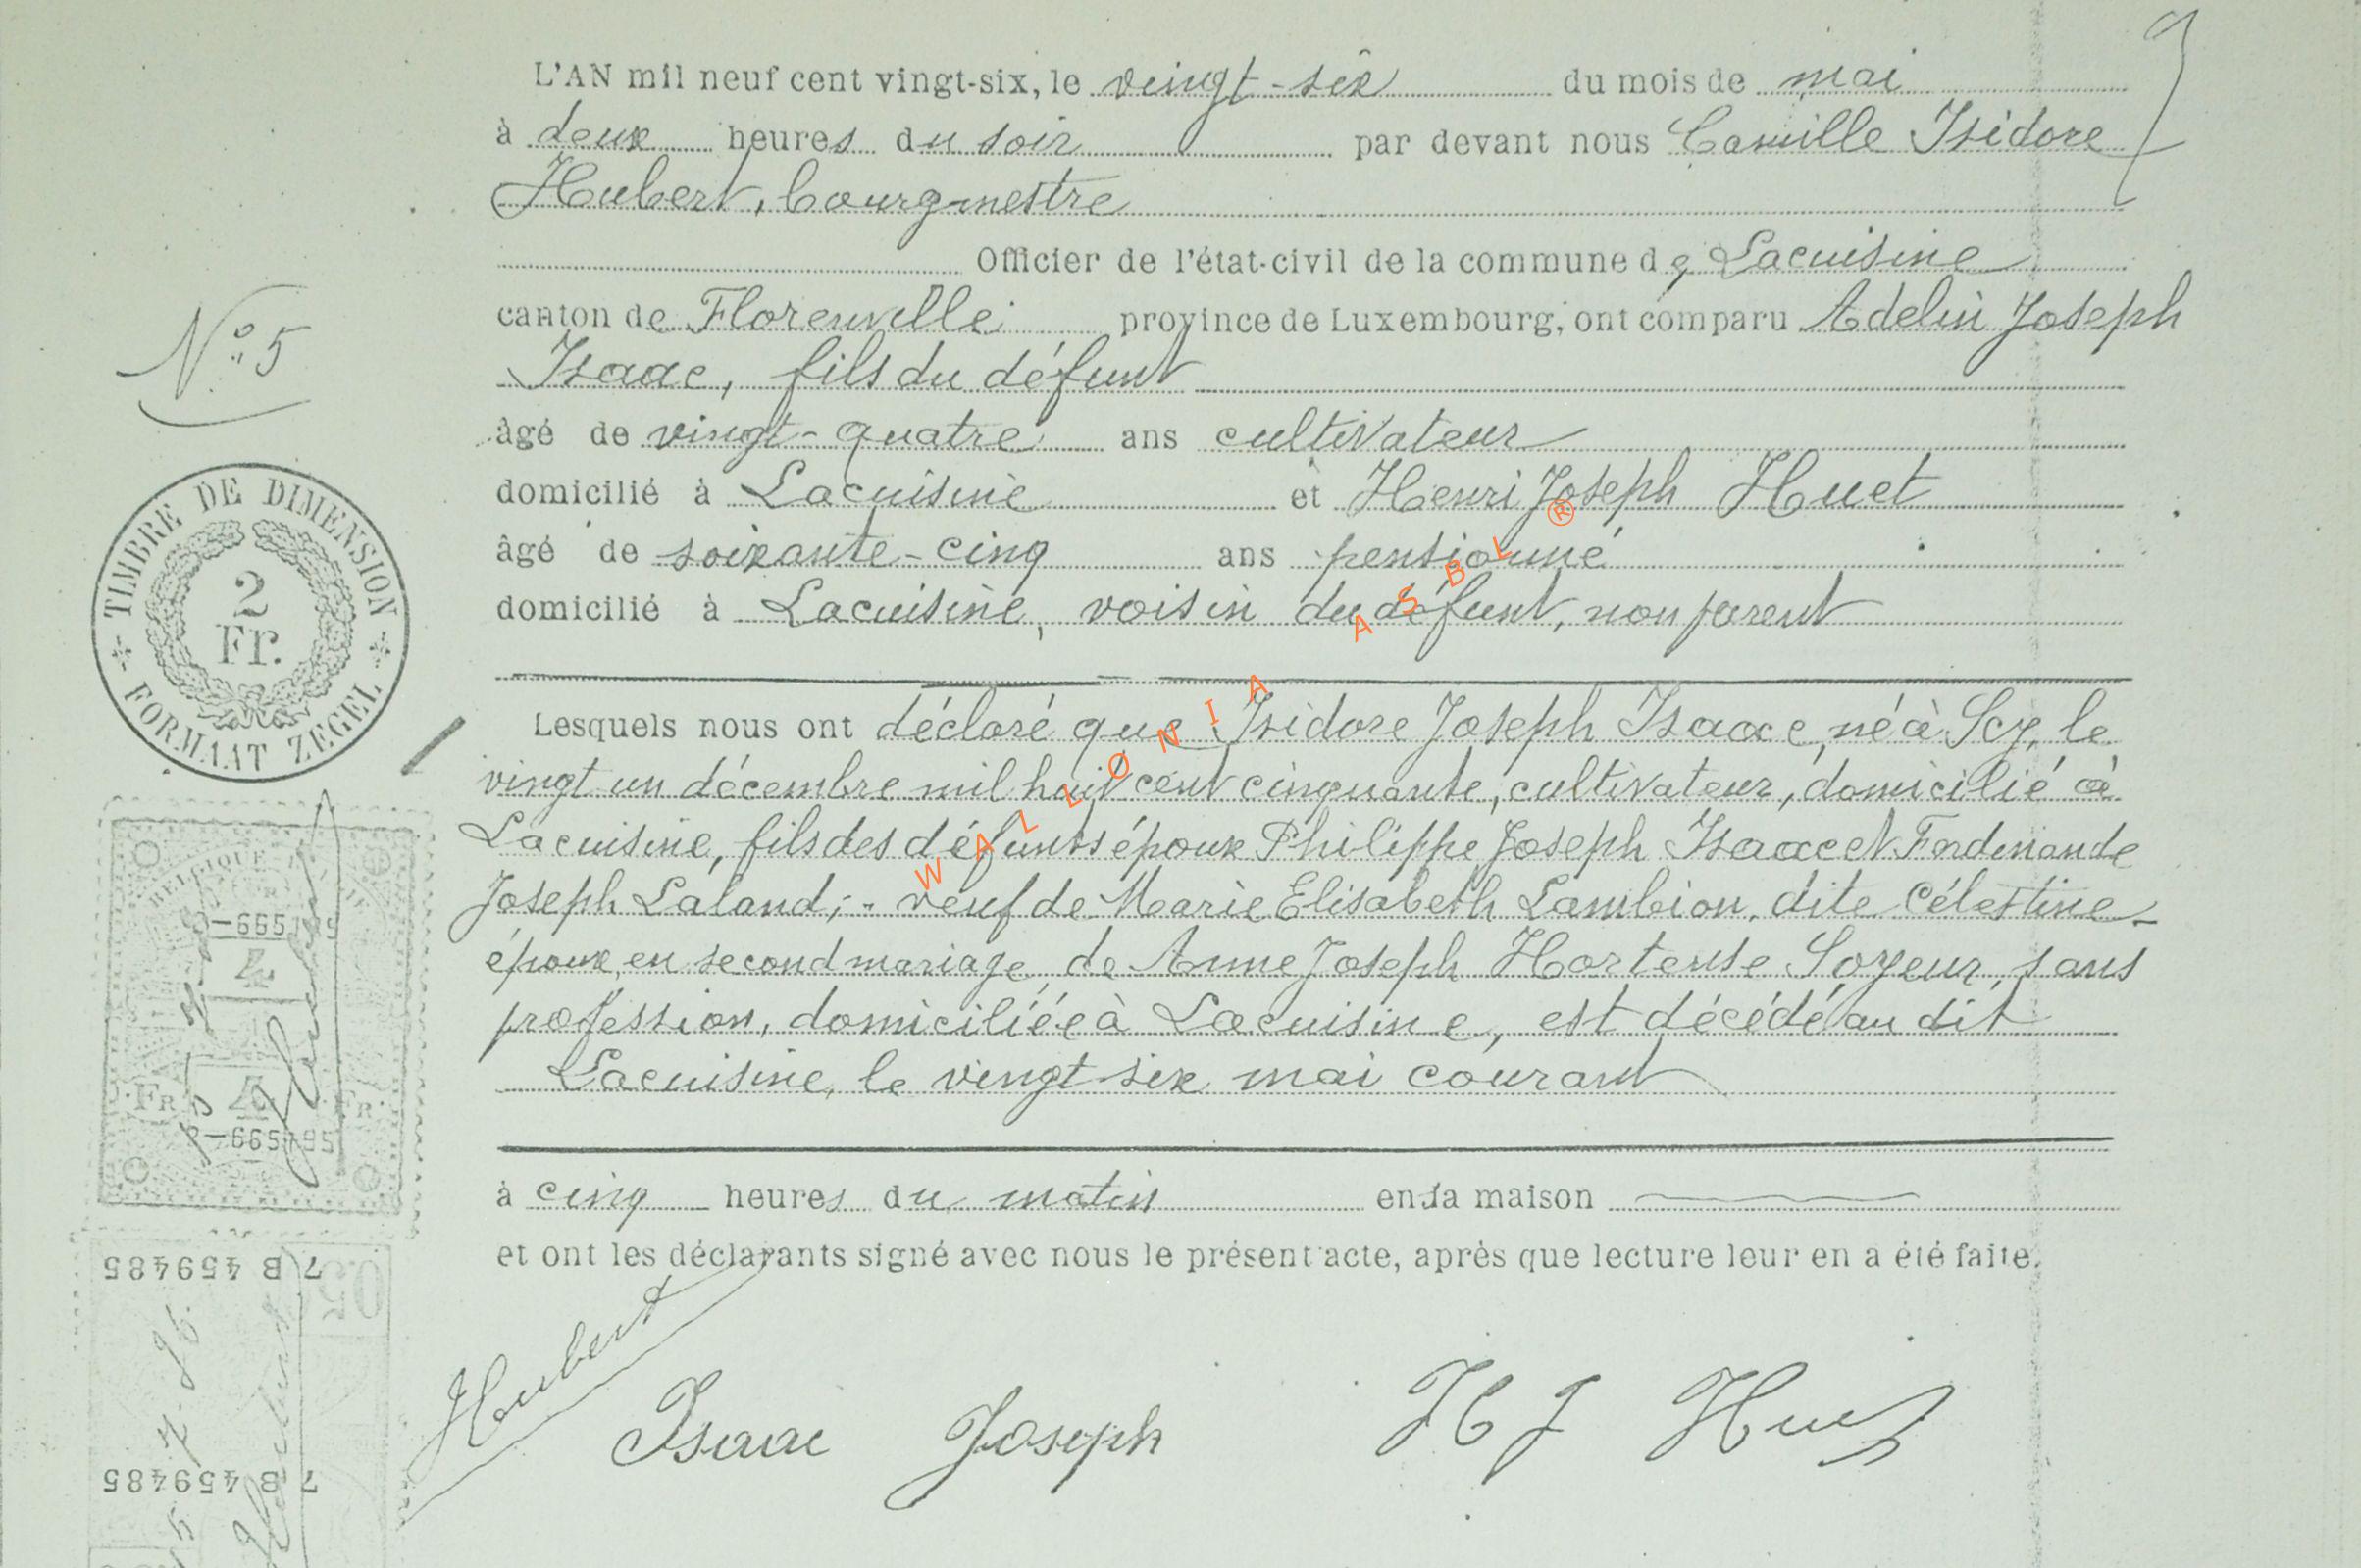 L'AN mil neuf cent vingt-six, le vingt-six du mois de mai
à deux heures du soir par devant nous Camille Isidore
Hubert, bourgmestre
Officier de l'état-civil de la commune de Lacuisine
canton de Florenville province de Luxembourg, ont comparu Adelin Joseph
Isaac, fils du défunt
âgé de vingt-quatre ans cultivateur
domicilié à Lacuisine et Henri Joseph Huet
âgé de soixante-cinq ans pensionné
domicilié à Lacuisine, voisin du défunt, non parent
Lesquels nous ont déclaré que Isidore Joseph Isaac, né à Scy, le
vingt un décembre mil huit cent cinquante, cultivateur, domicilié à
Lacuisine, fils des défunts époux Philippe Joseph Isaac et Ferdinande
Joseph Laland; - veuf de Marie Elisabeth Lambion, dite Célestine -
époux, en second mariage, de Anne Joseph Hortense Soyeur, sans
profession, domiciliée à Lacuisine, est décédé au dit
Lacuisine, le vingt-six mai courant
à cinq heures du matin en la maison
et ont les déclarants signé avec nous le présent acte, après que lecture leur en a été faite.
Hubert
Isaac Joseph H J Huet
N° 5
TIMBRE DE DIMENSION
2
Fr.
FORMAAT ZEGEL
BELGIQUE
4
Fr Fr
7 B 459485
7 B 459485
WALLONIA ASBL ®